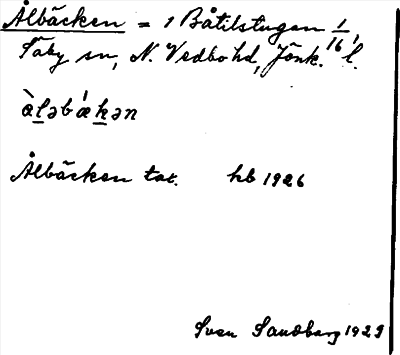 Ålbäcken = 1 Båtilstugan 1/16,
Säby sn, N. Vedbo hd, Jönk. l.
æ̀ləbǽkən
Ålbäcken tor. hb 1926
Sven Sandberg 1929